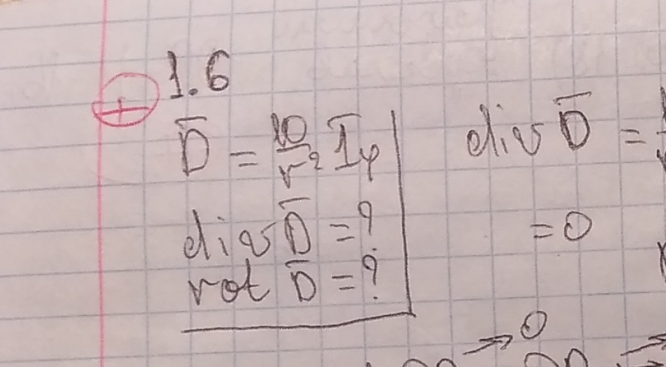 1.6
D̄ = 10/r² Ī_φ
div D̄ = ?
rot D̄ = ?
div D̄ =
= 0
→ 0